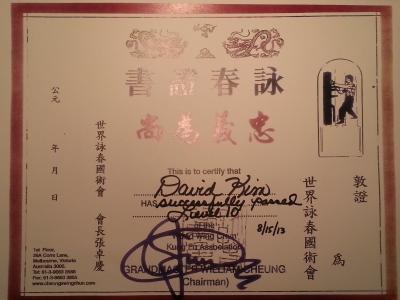 書證春詠
尚為義忠
公元
年
月
日
世界詠春國術會
會長張卓慶
敦證
為
世界詠春國術會
This is to certify that
David Kim
HAS successfully passed
Level 10
of the
World Wing Chun
Kung Fu Association
8/15/13
GRANDMASTER WILLIAM CHEUNG
(Chairman)
1st Floor,
Melbourne, Victoria
Australia 3000.
www.cheungswingchun.com